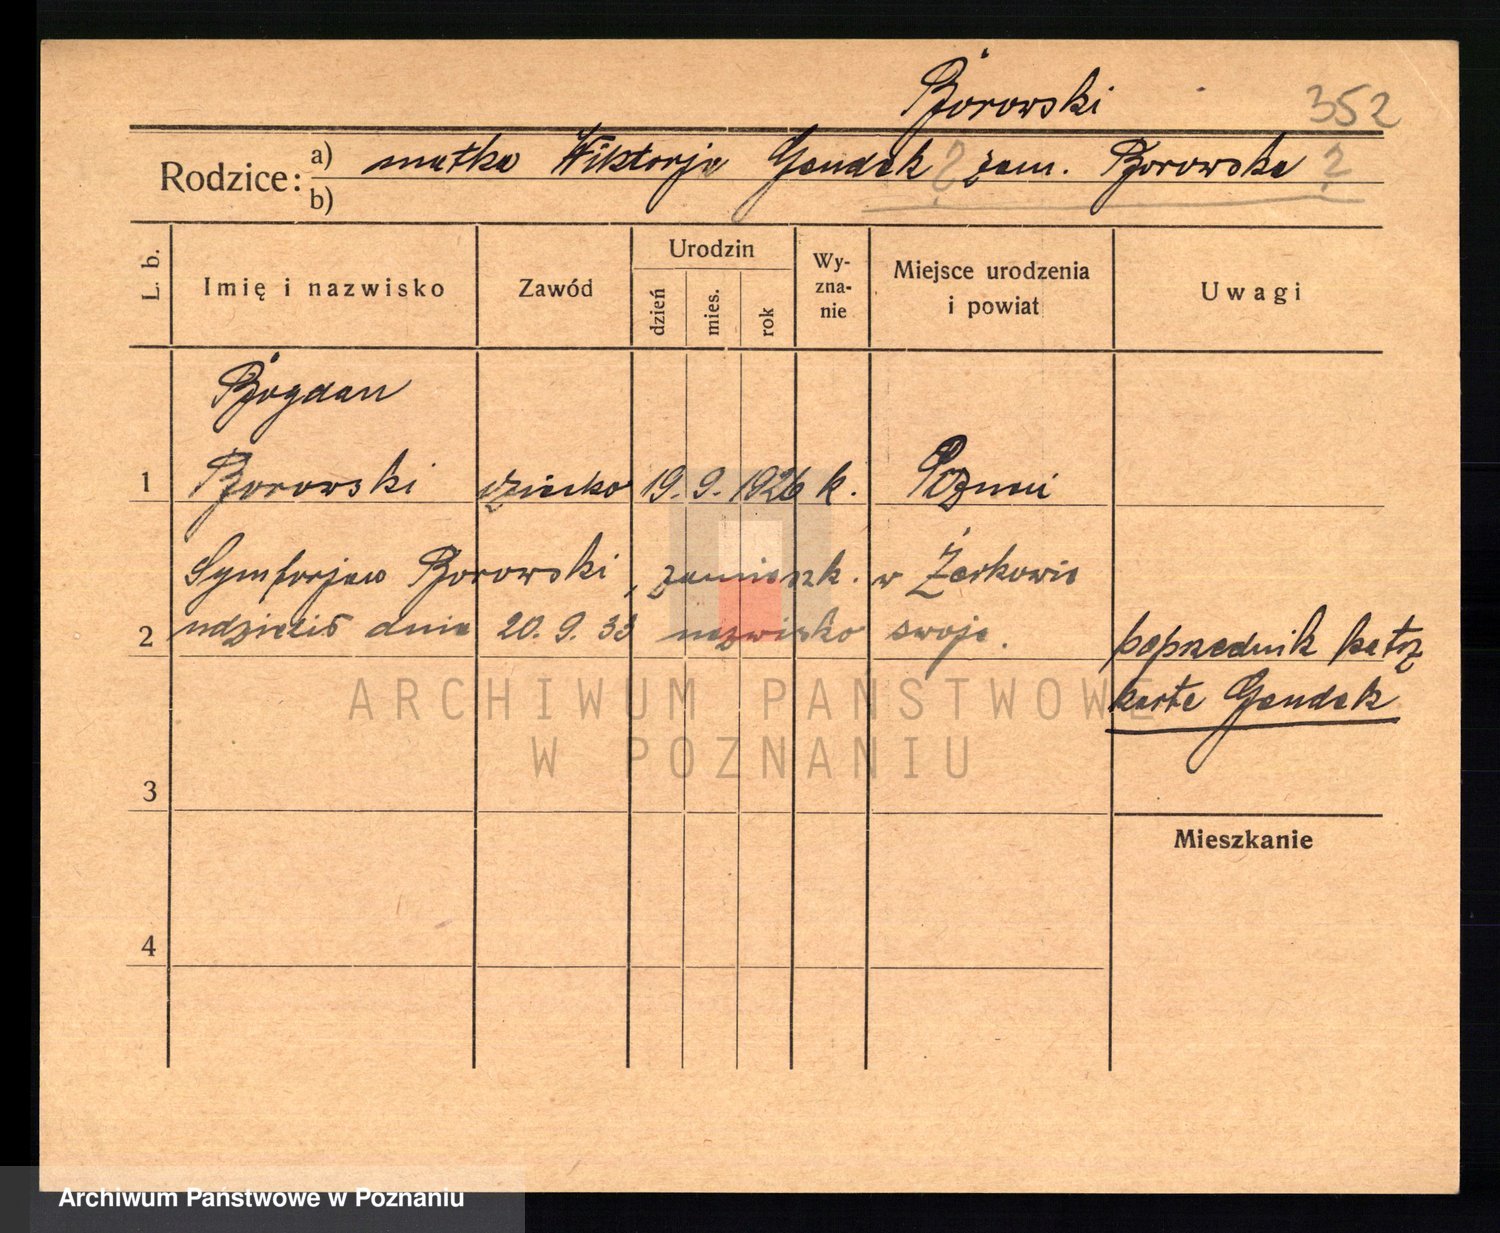 Borowski 352
Rodzice: a) matka Wiktorja Gendek ? zam. Borowska ?
b)
L. b. Imię i nazwisko Zawód Urodzin dzień mies. rok Wy-zna-nie Miejsce urodzenia i powiat Uwagi
Bogdan
1 Borowski dziecko 19. 9. 1926 k. Poznań
Symforjan Borowski, zamieszk. w Żerkowie
2 udzielił dnia 20. 9. 33 nazwisko swoje.
poprzednik patrz
karte Gendek
3
Mieszkanie
4
ARCHIWUM PAŃSTWOWE
W POZNANIU
Archiwum Państwowe w Poznaniu